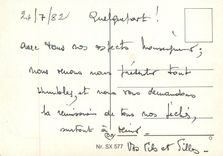 24/7/82 Quelquepart !
avec tous nos respects Monseigneur ;
nous venons nous présenter tout
humbles, et nous vous demandons
la rémission de tous nos péchés,
surtout à venir.
Vos fils et filles
Nr. SX 577